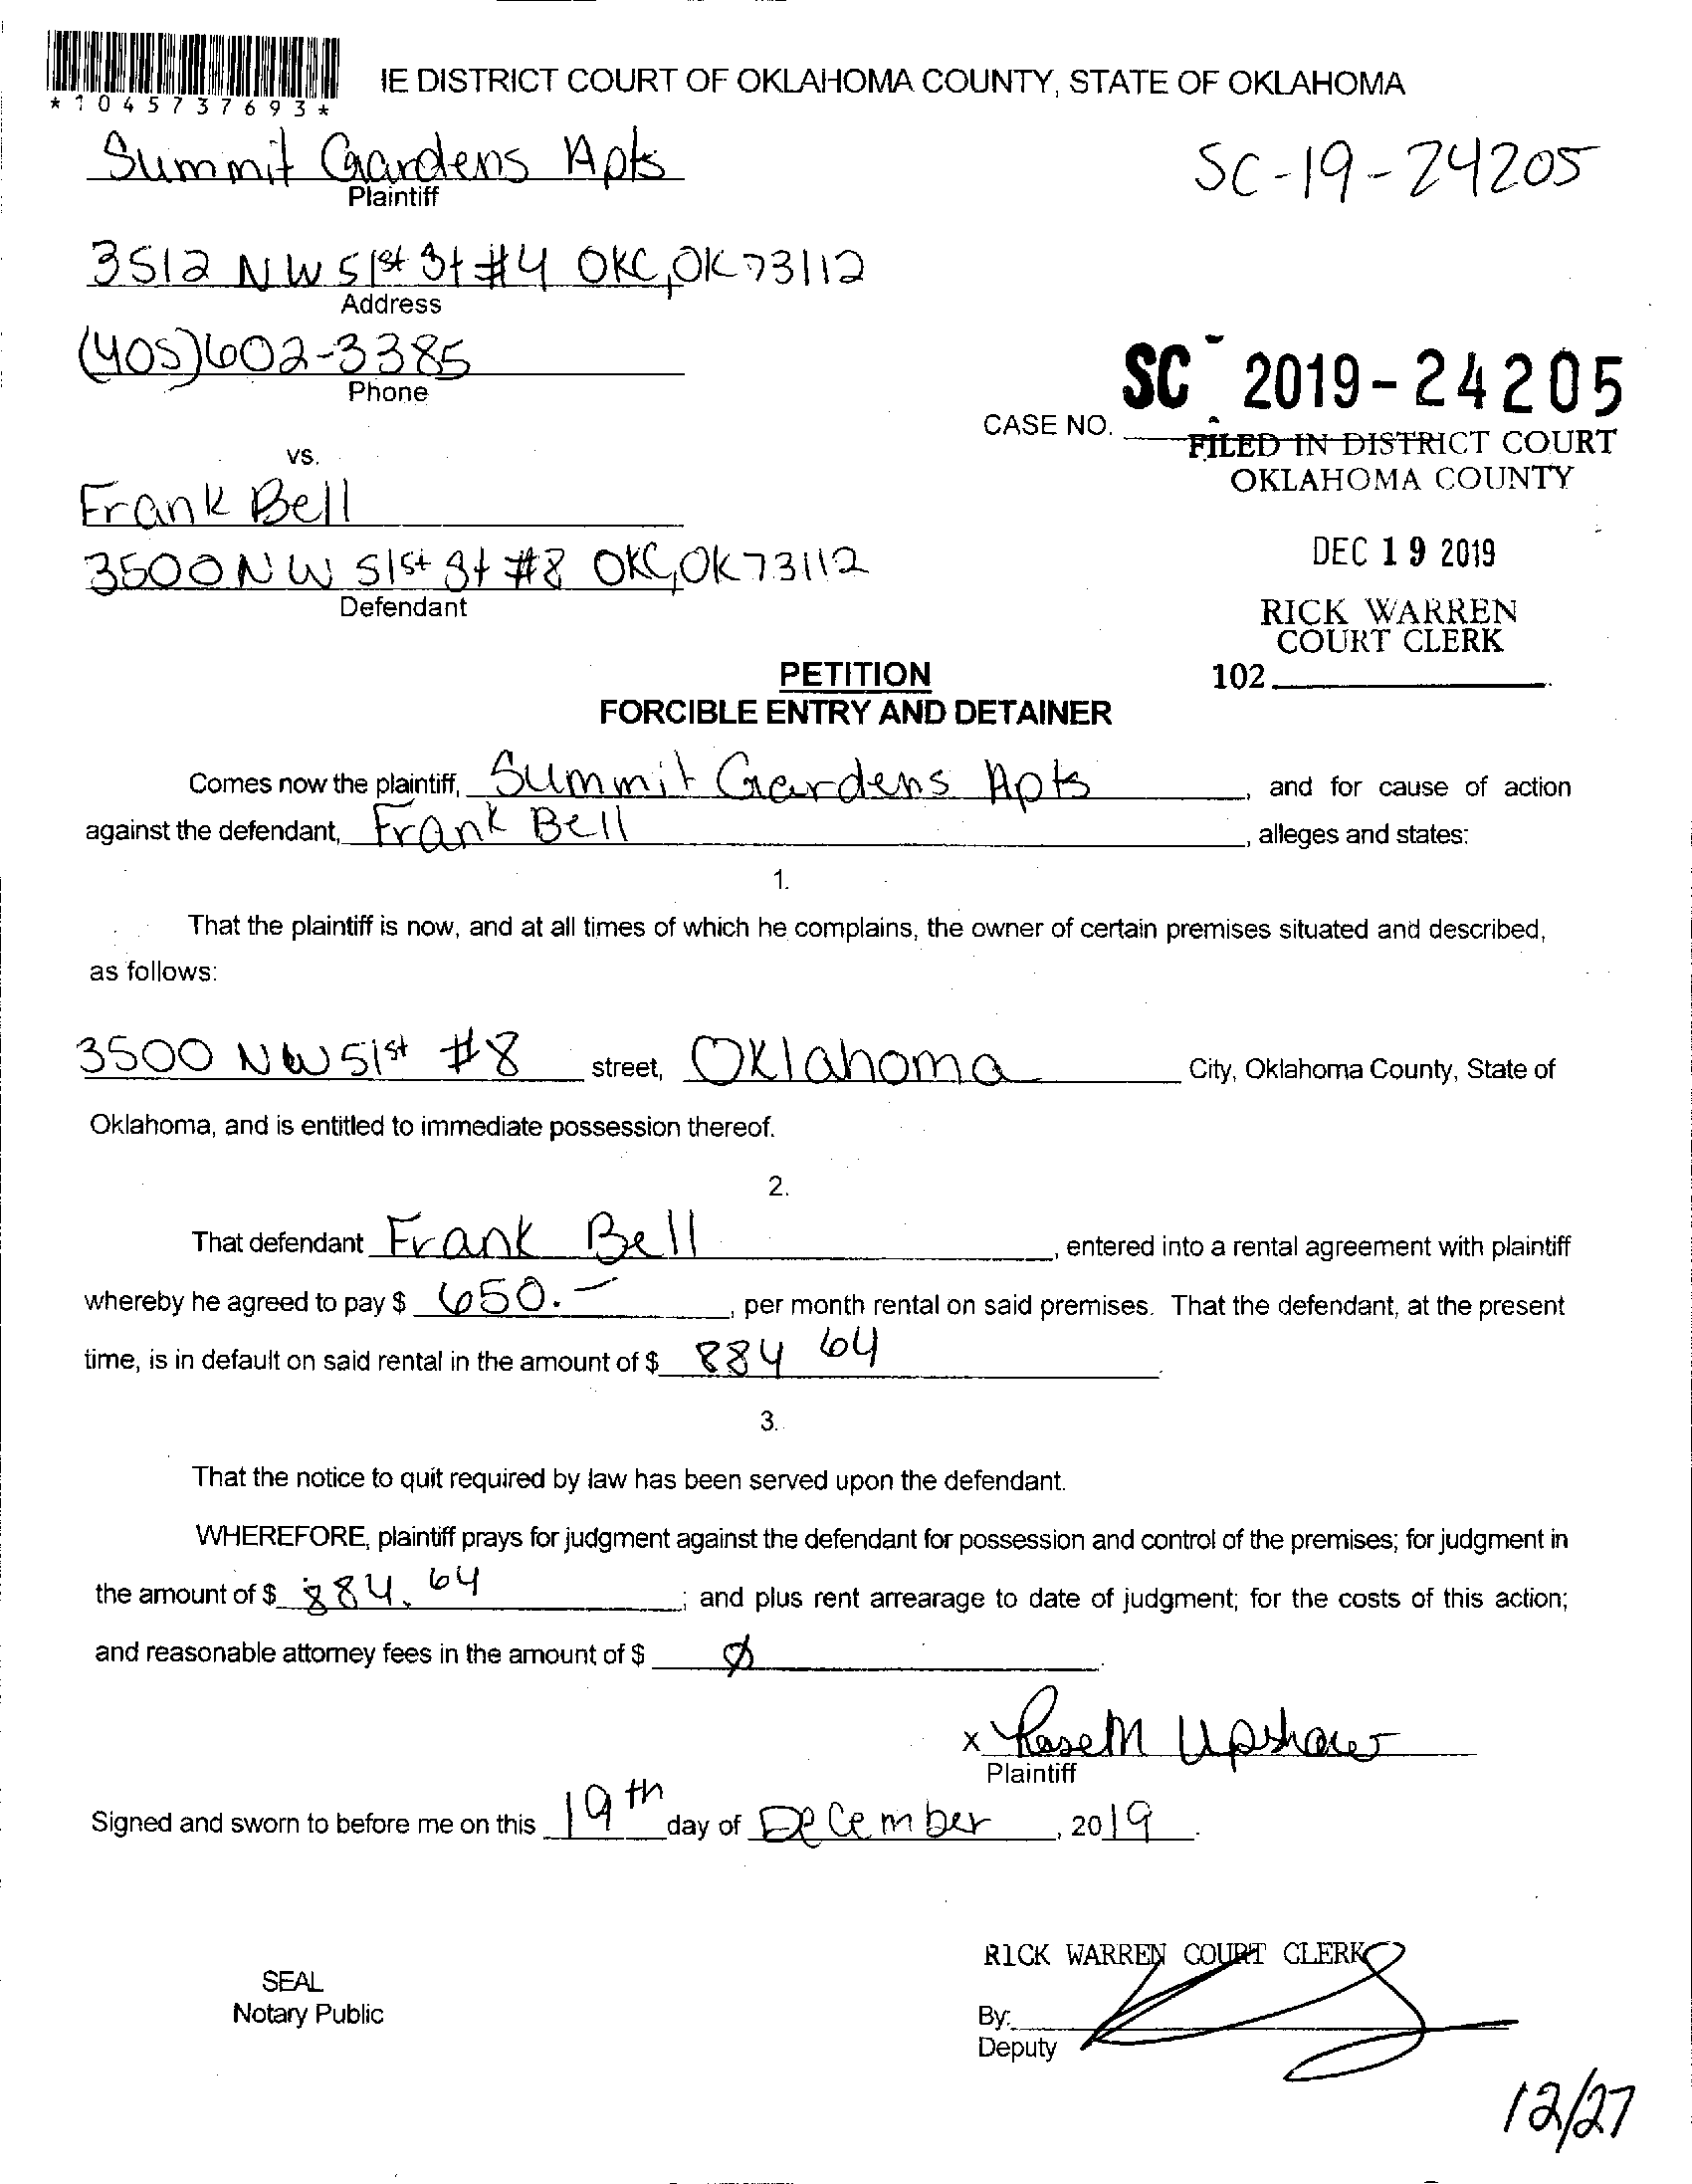 *1045737693*
IE DISTRICT COURT OF OKLAHOMA COUNTY, STATE OF OKLAHOMA
Summit Gardens Apts
Plaintiff
SC-19-24205
3512 NW 51st St #4 OKC, OK 73112
Address
(405)602-3385
Phone
SC - 2019-24205
CASE NO.
FILED IN DISTRICT COURT
OKLAHOMA COUNTY
vs.
Frank Bell
3500 NW 51st St #8 OKC, OK 73112
Defendant
DEC 19 2019
RICK WARREN
COURT CLERK
102
PETITION
FORCIBLE ENTRY AND DETAINER
Comes now the plaintiff, Summit Gardens Apts, and for cause of action
against the defendant, Frank Bell, alleges and states:
1.
That the plaintiff is now, and at all times of which he complains, the owner of certain premises situated and described,
as follows:
3500 NW 51st #8 street, Oklahoma City, Oklahoma County, State of
Oklahoma, and is entitled to immediate possession thereof.
2.
That defendant Frank Bell, entered into a rental agreement with plaintiff
whereby he agreed to pay $ 650.-, per month rental on said premises. That the defendant, at the present
time, is in default on said rental in the amount of $ 884 64.
3.
That the notice to quit required by law has been served upon the defendant.
WHEREFORE, plaintiff prays for judgment against the defendant for possession and control of the premises; for judgment in
the amount of $ 884.64; and plus rent arrearage to date of judgment; for the costs of this action;
and reasonable attorney fees in the amount of $ Ø.
x Rose M Upshaw
Plaintiff
Signed and sworn to before me on this 19th day of December, 2019.
RICK WARREN COURT CLERK
SEAL
Notary Public
By:
Deputy
12/27